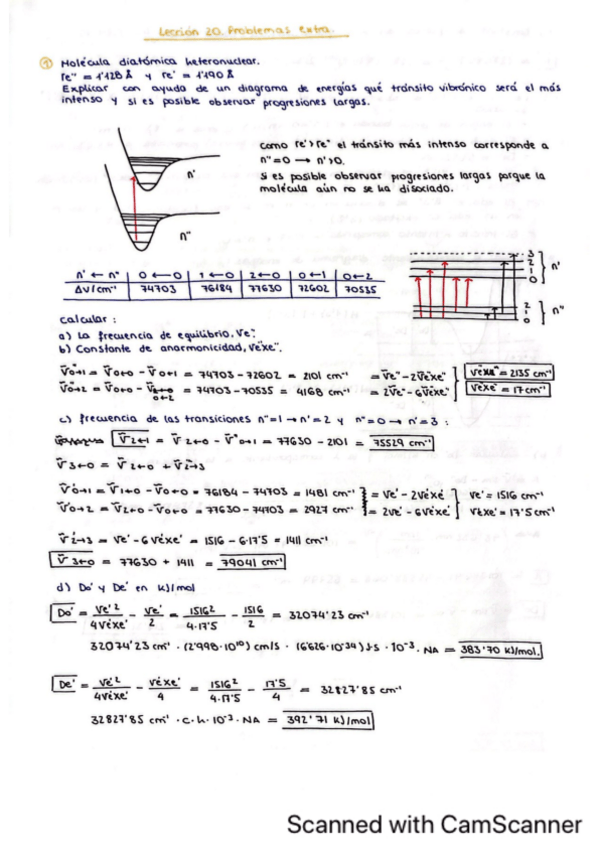 Lección 20. Problemas extra.
① Molécula diatómica heteronuclear.
re'' = 1'128 Å y re' = 1'190 Å
Explicar con ayuda de un diagrama de energías qué tránsito vibrónico será el más
intenso y si es posible observar progresiones largas.
como re'>re'' el tránsito más intenso corresponde a
n''=0 → n'>0.
Si es posible observar progresiones largas porque la
molécula aún no se ha disociado.
n'
n''
n' ← n'' | 0 ← 0 | 1 ← 0 | 2 ← 0 | 0 ← 1 | 0 ← 2
Δν/cm⁻¹ | 74703 | 76184 | 77630 | 72602 | 70535
3
2
1
0
n'
2
1
0
n''
calcular:
a) La frecuencia de equilibrio, νe''.
b) Constante de anarmonicidad, νexe''.
ν̄''0→1 = ν̄0←0 − ν̄0←1 = 74703 − 72602 = 2101 cm⁻¹ = ν̄e'' − 2ν̄exe''
ν̄''0→2 = ν̄0←0 − ν̄0←2 = 74703 − 70535 = 4168 cm⁻¹ = 2ν̄e'' − 6ν̄exe''
= 2135 cm⁻¹
νexe'' = 17 cm⁻¹
c) frecuencia de las transiciones n''=1 → n'=2 y n''=0 → n'=3 :
ν̄2←1 = ν̄2←0 − ν̄''0→1 = 77630 − 2101 = 75529 cm⁻¹
ν̄3←0 = ν̄2←0 + ν̄'2→3
ν̄'0→1 = ν̄1←0 − ν̄0←0 = 76184 − 74703 = 1481 cm⁻¹ = νe' − 2νexe' νe' = 1516 cm⁻¹
ν̄'0→2 = ν̄2←0 − ν̄0←0 = 77630 − 74703 = 2927 cm⁻¹ = 2νe' − 6νexe' νexe' = 17'5 cm⁻¹
ν̄'2→3 = νe' − 6νexe' = 1516 − 6·17'5 = 1411 cm⁻¹
ν̄3←0 = 77630 + 1411 = 79041 cm⁻¹
d) Do' y De' en kJ/mol
Do' = νe'²/4νexe' − νe'/2 = 1516²/4·17'5 − 1516/2 = 32074'23 cm⁻¹
32074'23 cm⁻¹ · (2'998·10¹⁰) cm/s · (6'626·10⁻³⁴) J·s · 10⁻³ · NA = 383'70 kJ/mol.
De' = νe'²/4νexe' − νexe'/4 = 1516²/4·17'5 − 17'5/4 = 32827'85 cm⁻¹
32827'85 cm⁻¹ · c · h · 10⁻³ · NA = 392'71 kJ/mol
Scanned with CamScanner